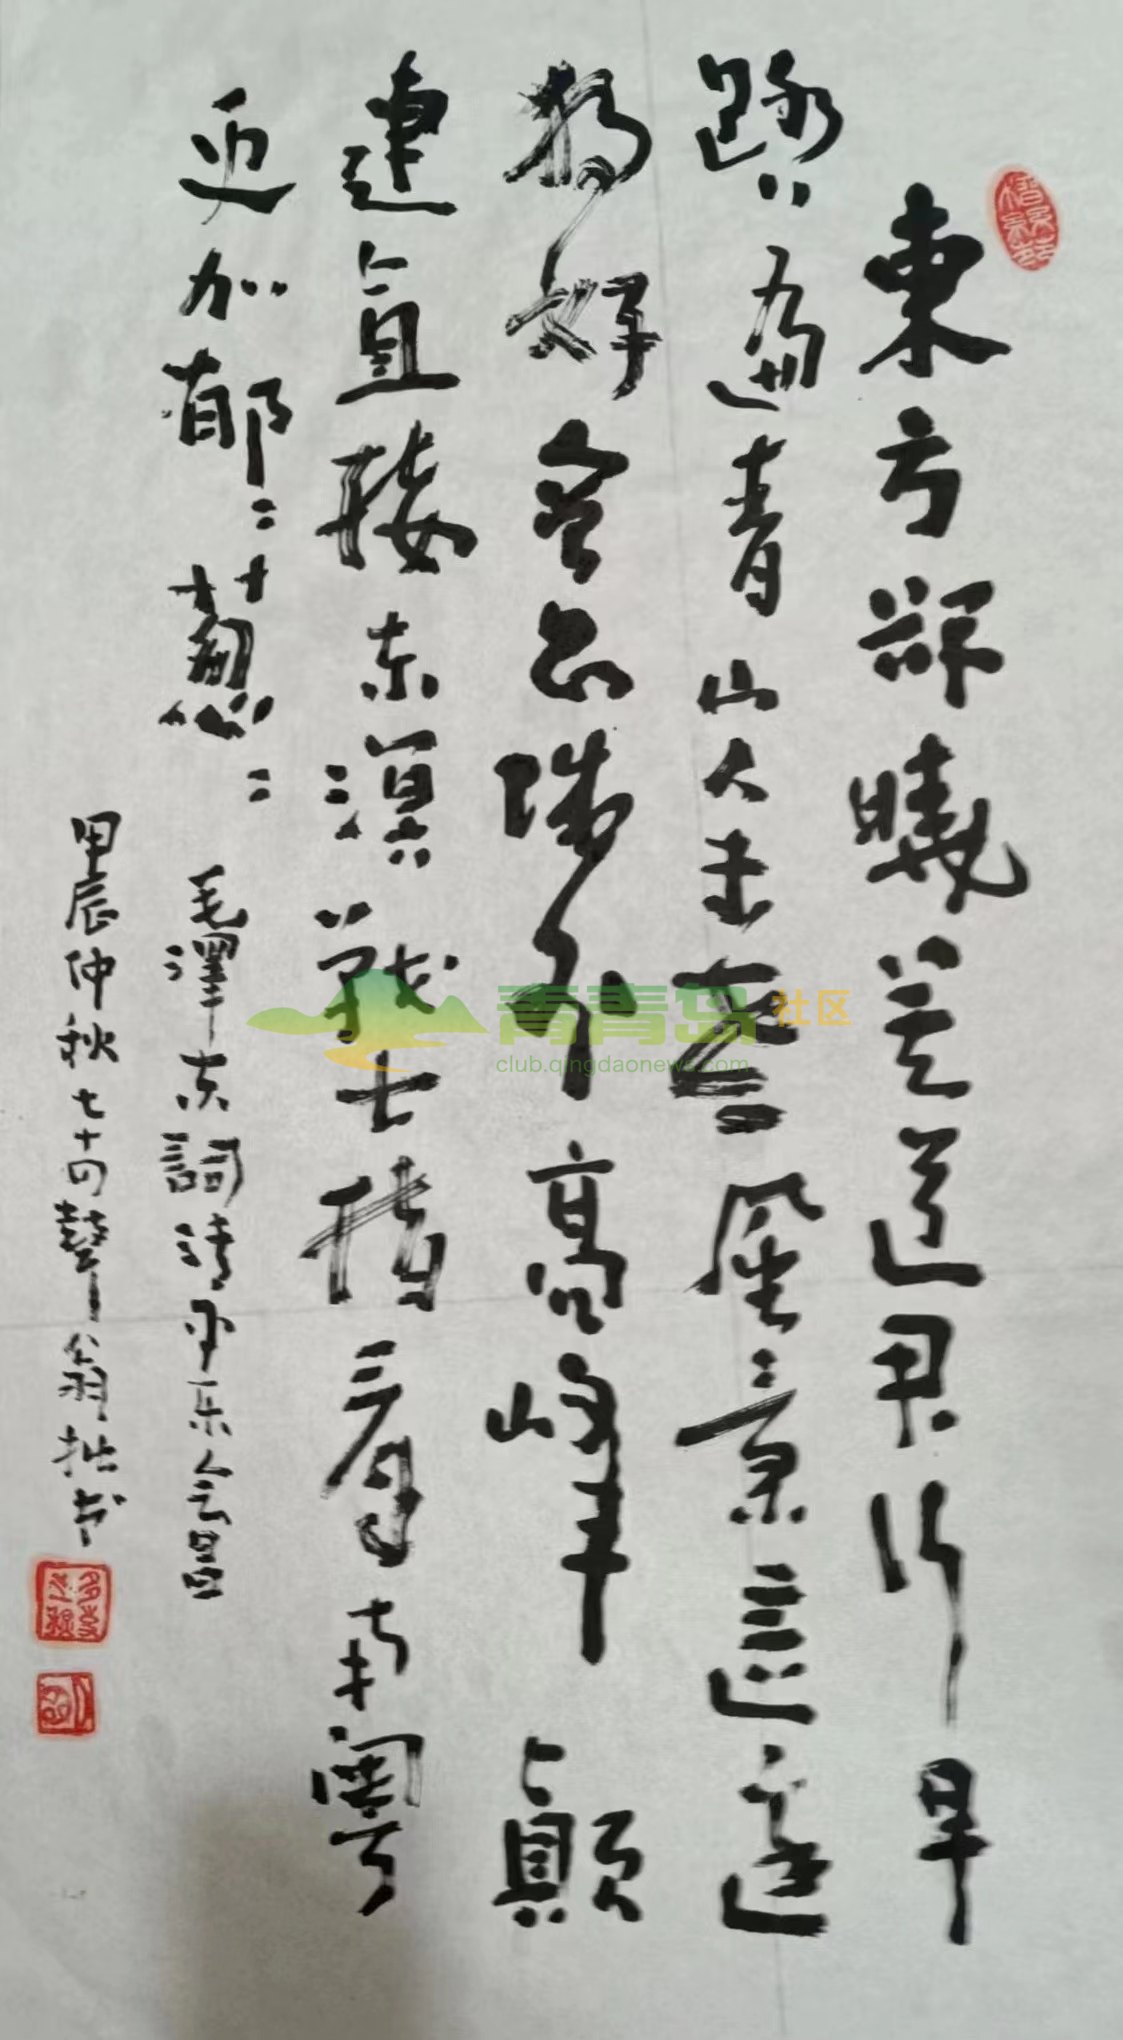 東方欲曉莫道君行早
踏遍青山人未老風景這邊
独好會昌城外高峰顛
連直接东溟戰士指看南粵
更加郁〻葱〻
毛澤东詞清平乐会昌
甲辰仲秋七十四聾翁拙书
青青岛社区
club.qingdaonews.com